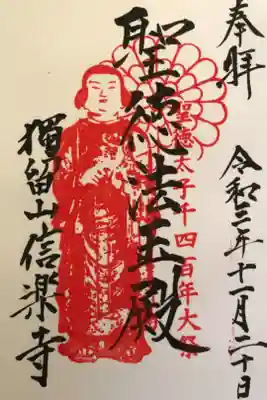 奉拝
令和三年十一月二十日
聖徳太子千四百年大祭
聖徳法王殿
獨留山信楽寺